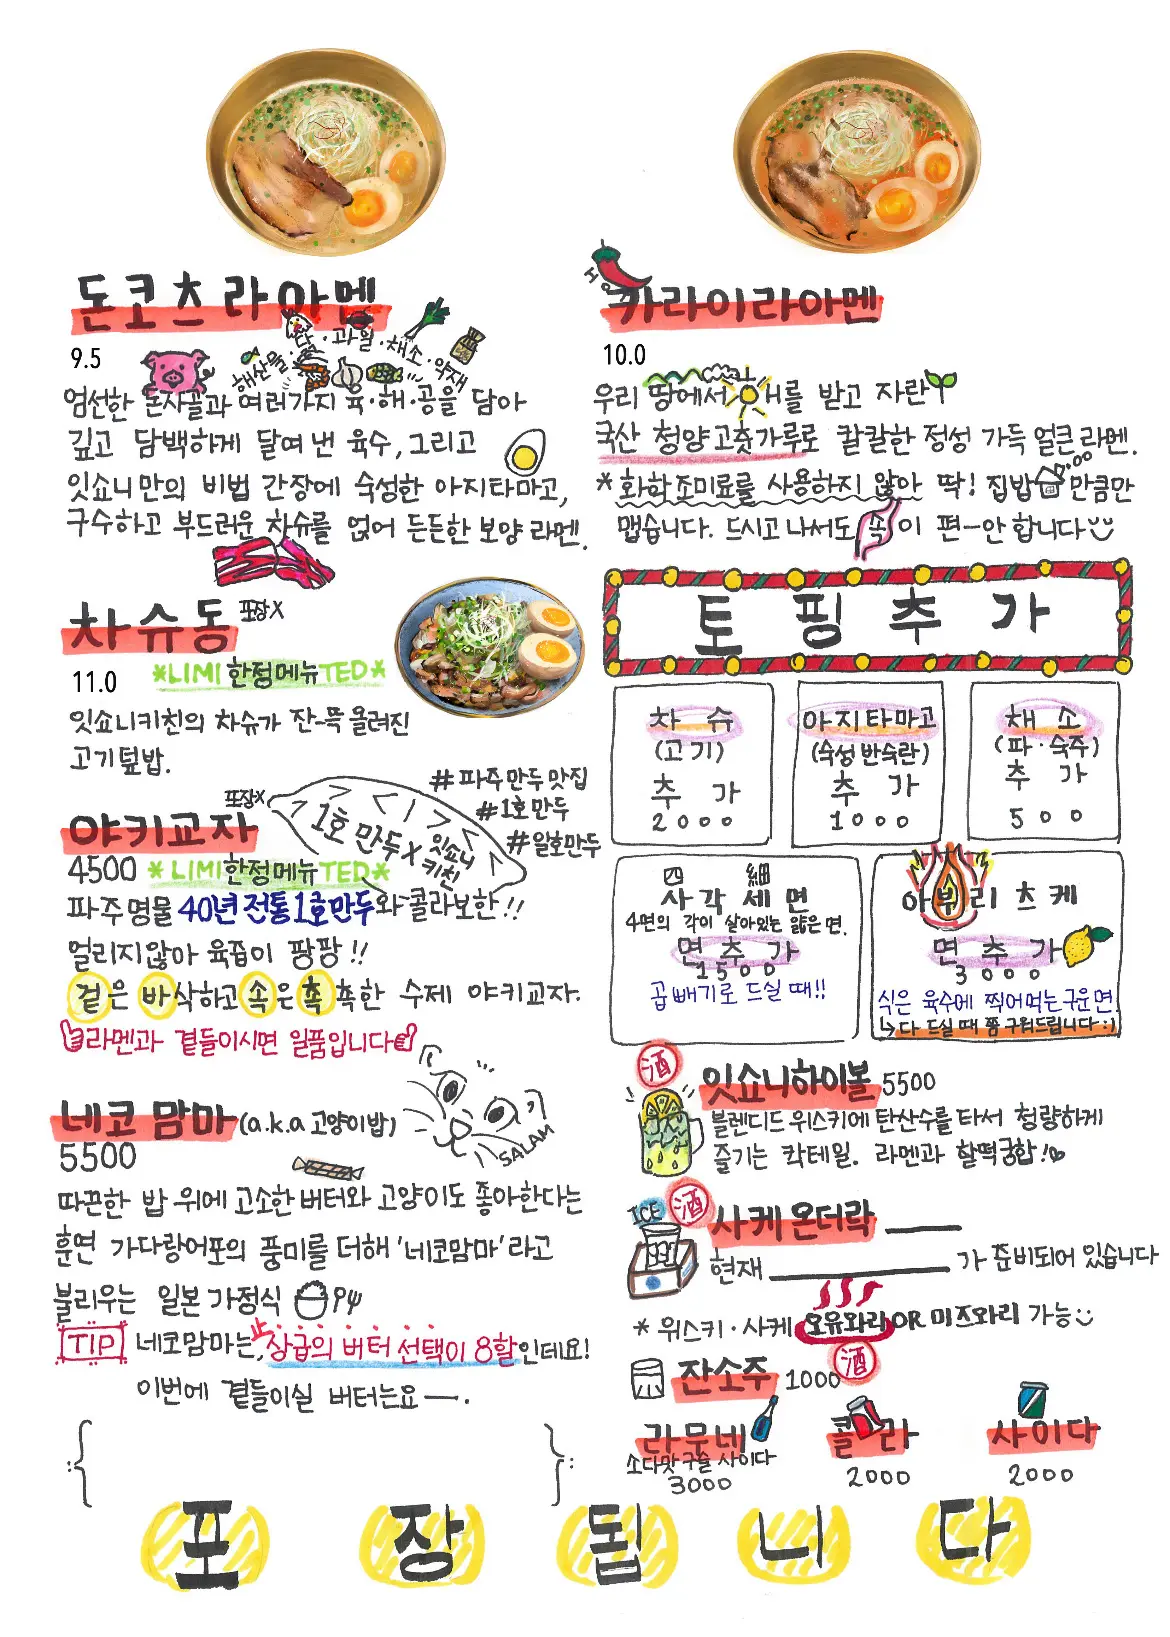 돈코츠라아멘
9.5
해산물·닭·과일·채소·약재
엄선한 돈사골과 여러가지 육·해·공을 담아
깊고 담백하게 달여 낸 육수, 그리고
잇쇼니만의 비법 간장에 숙성한 아지타마고,
구수하고 부드러운 차슈를 얹어 든든한 보양 라멘.
차슈동 포장X
11.0
*LIMI한정메뉴TED*
잇쇼니키친의 차슈가 잔-뜩 올려진
고기덮밥.
야키교자 포장X
1호만두X잇쇼니키친
#파주만두맛집
#1호만두
#일호만두
4500 *LIMI한정메뉴TED*
파주명물 40년 전통 1호만두와 콜라보한!!
얼리지않아 육즙이 팡팡!!
겉은 바삭하고 속은 촉촉한 수제 야키교자.
라멘과 곁들이시면 일품입니다
네코맘마 (a.k.a 고양이밥)
SALAM
5500
따끈한 밥 위에 고소한 버터와 고양이도 좋아한다는
훈연 가다랑어포의 풍미를 더해 '네코맘마'라고
불리우는 일본 가정식
TIP 네코맘마는, 상급의 버터 선택이 8할인데요!
이번에 곁들이실 버터는요ㅡ.
:{ }:
카라이라아멘
10.0
우리 땅에서 해를 받고 자란
국산 청양고춧가루로 칼칼한 정성 가득 얼큰 라멘.
*화학조미료를 사용하지 않아 딱! 집밥만큼만
맵습니다. 드시고 나서도 속이 편ㅡ안합니다
토핑추가
차슈
(고기)
추가
2000
아지타마고
(숙성반숙란)
추가
1000
채소
(파·숙주)
추가
500
四 細
사각세면
4면의 각이 살아있는 얇은 면.
면추가
1500
곱빼기로 드실 때!!
아부리츠케
면추가
3000
식은 육수에 찍어먹는 구운면
↳다 드실 때 쯤 구워드립니다 :)
酒
잇쇼니하이볼 5500
블렌디드 위스키에 탄산수를 타서 청량하게
즐기는 칵테일. 라멘과 찰떡궁합!
ICE 酒
사케온더락
현재 가 준비되어 있습니다
*위스키·사케 오유와리 OR 미즈와리 가능
잔소주 1000 酒
라무네
소다맛 구슬 사이다
3000
콜라
2000
사이다
2000
포장됩니다